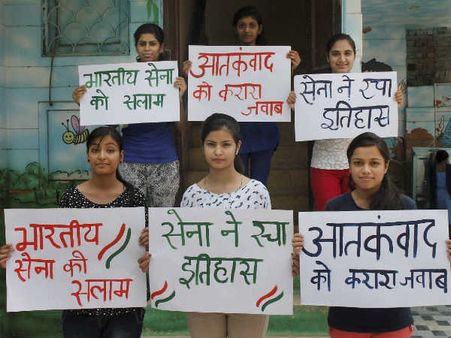 भारतीय सेना
को सलाम
आतकंवाद
को करारा
जवाब
सेना ने रचा
इतिहास
भारतीय
सेना की
सलाम
सेना ने रचा
इतिहास
आतकंवाद
को करारा जवाब